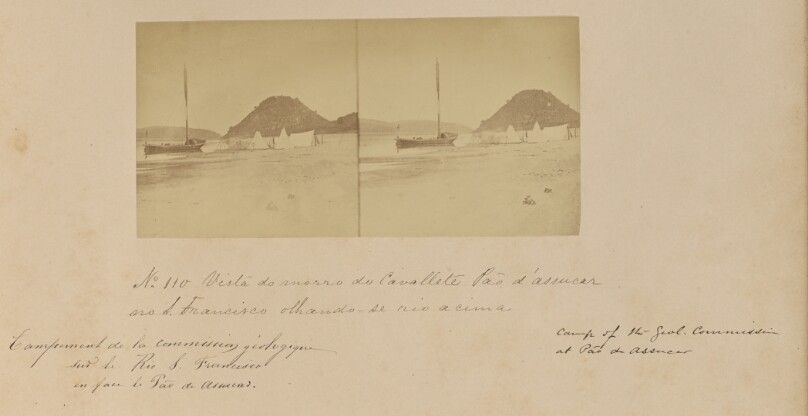 No 110 Vista do morro do Cavallête Pão d'assucar
no S. Francisco olhando-se rio acima
Campement de la commission géologique
sur le Rio S. Francisco
en face le Pão de Assucar.
Camp of the Geol. Commission
at Pão de Assucar